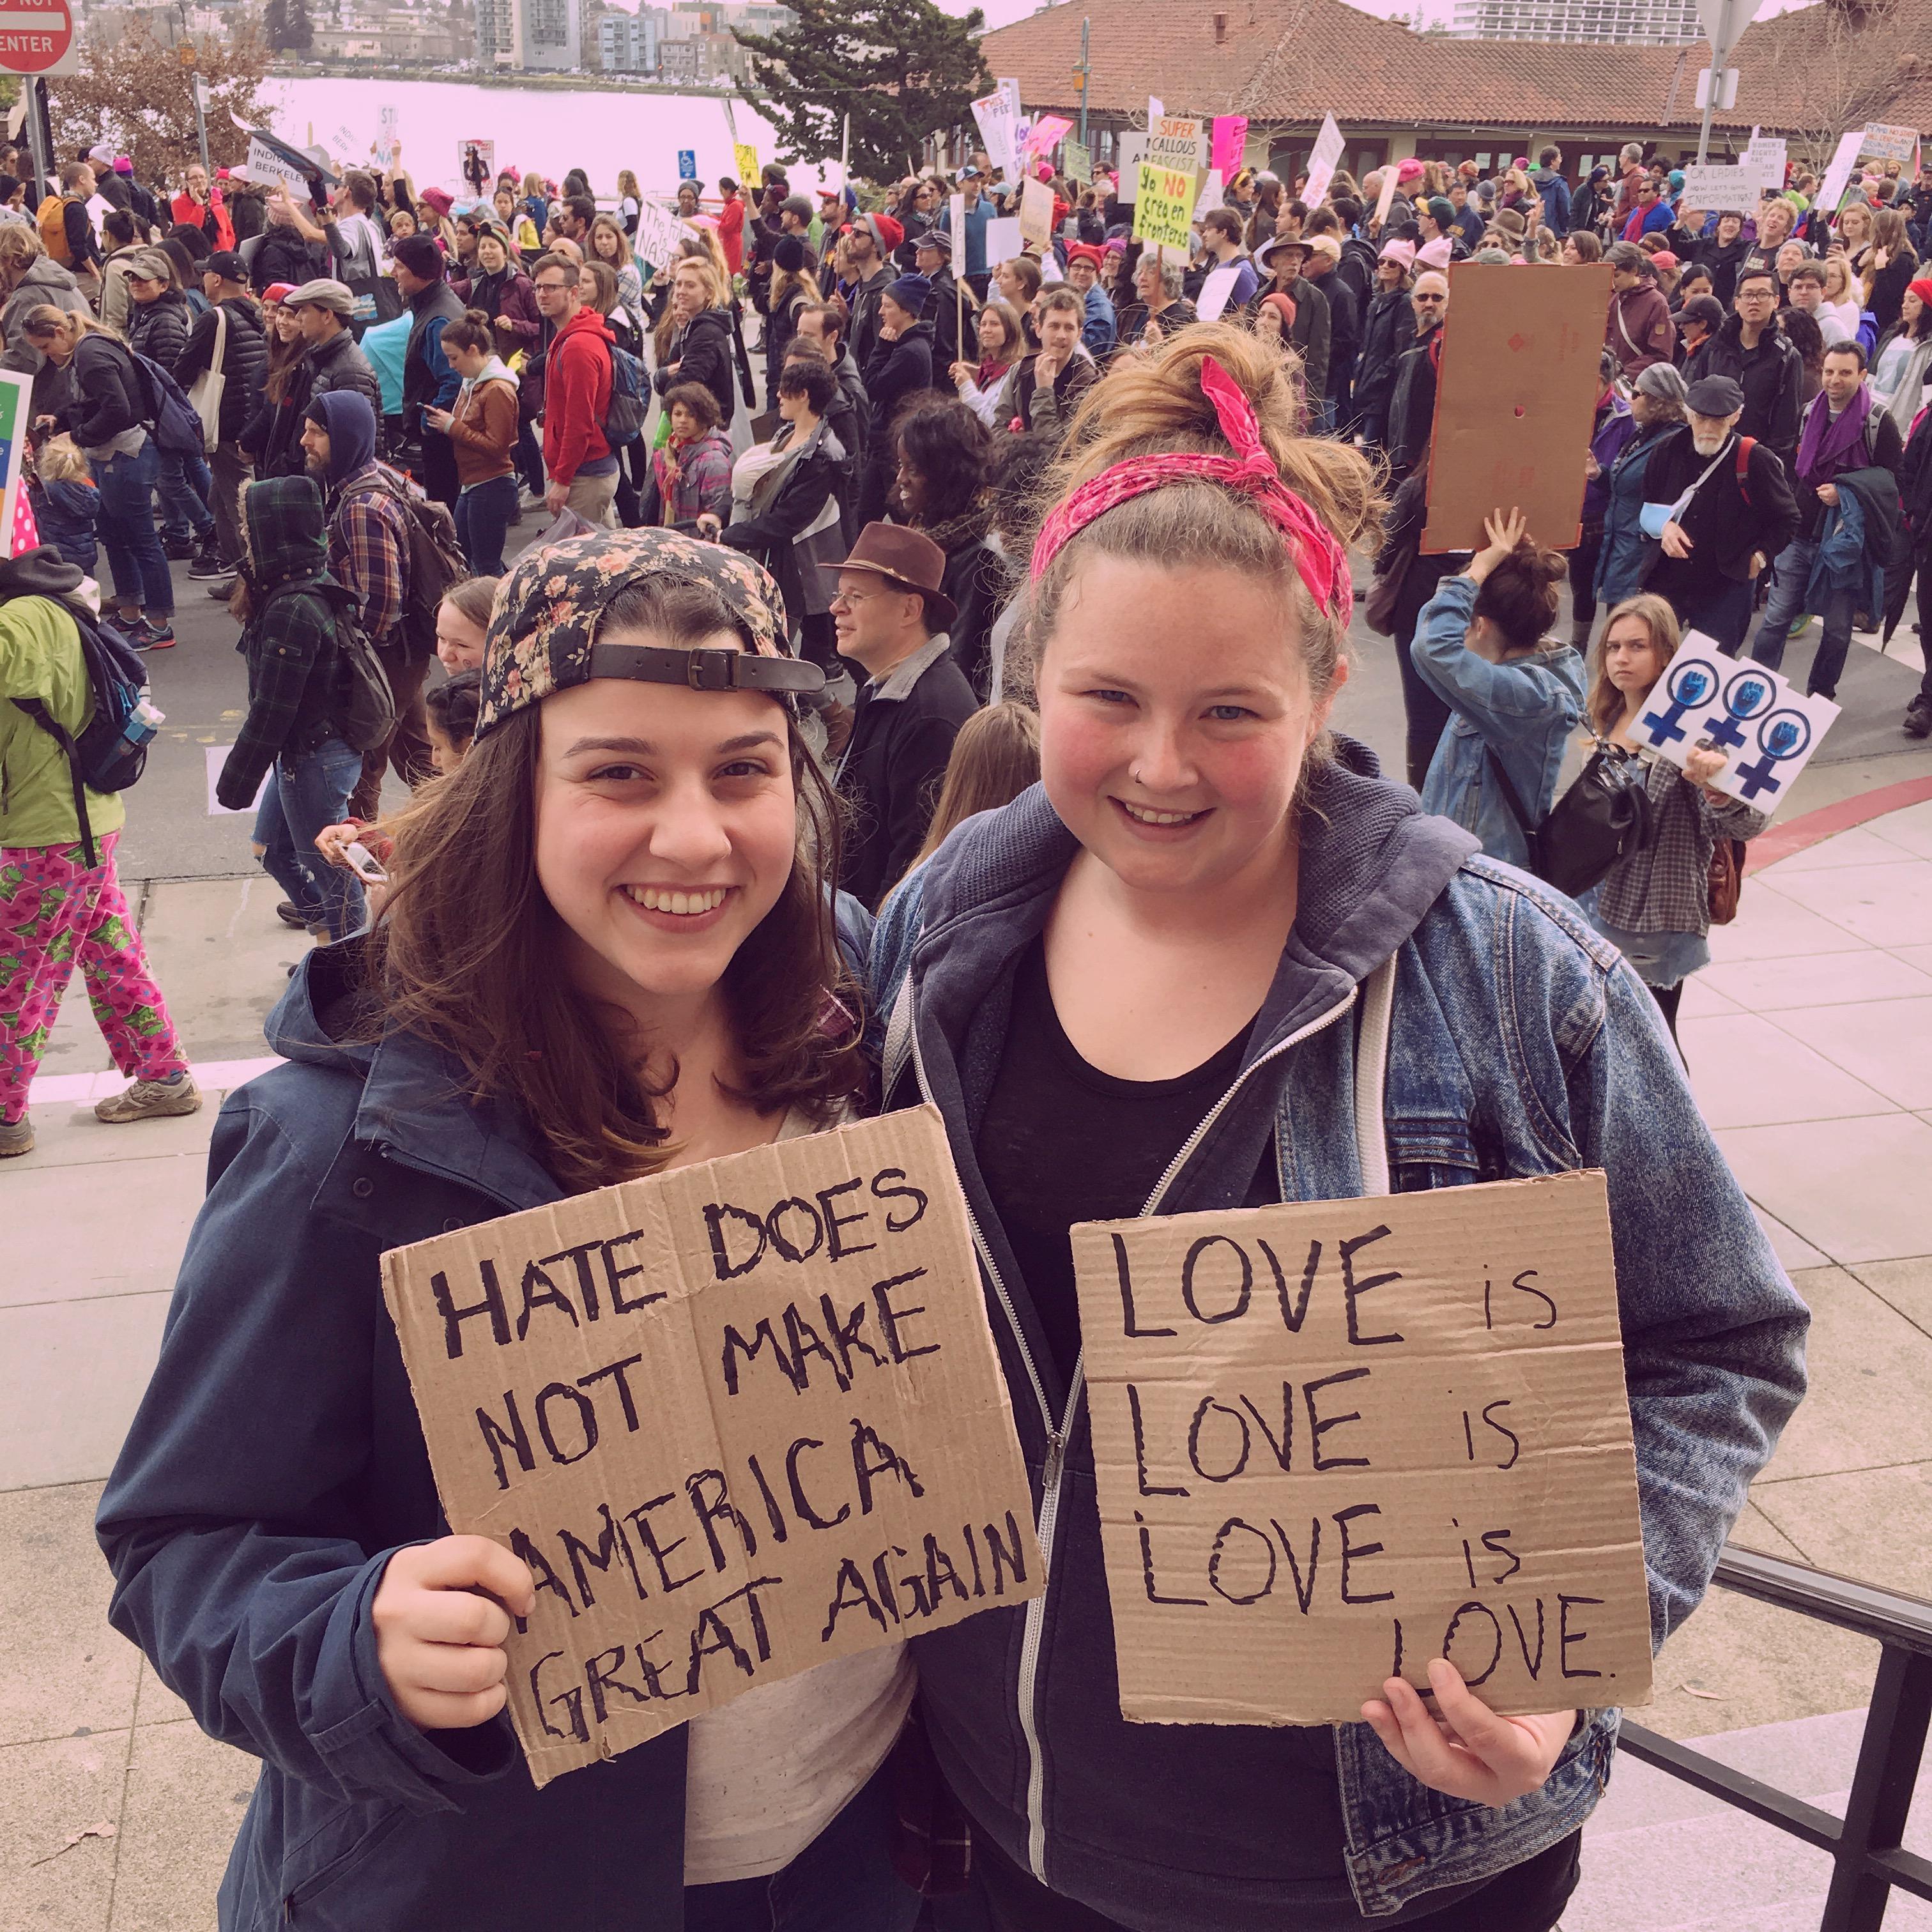 DO NOT
ENTER
INDIVI
BERKELEY
SUPER
CALLOUS
FASCIST
Yo NO
creo en
fronteras
OK LADIES
NOW LETS HAVE
INFORMATION
HATE DOES
NOT MAKE
AMERICA
GREAT AGAIN
LOVE is
LOVE is
LOVE is
LOVE.